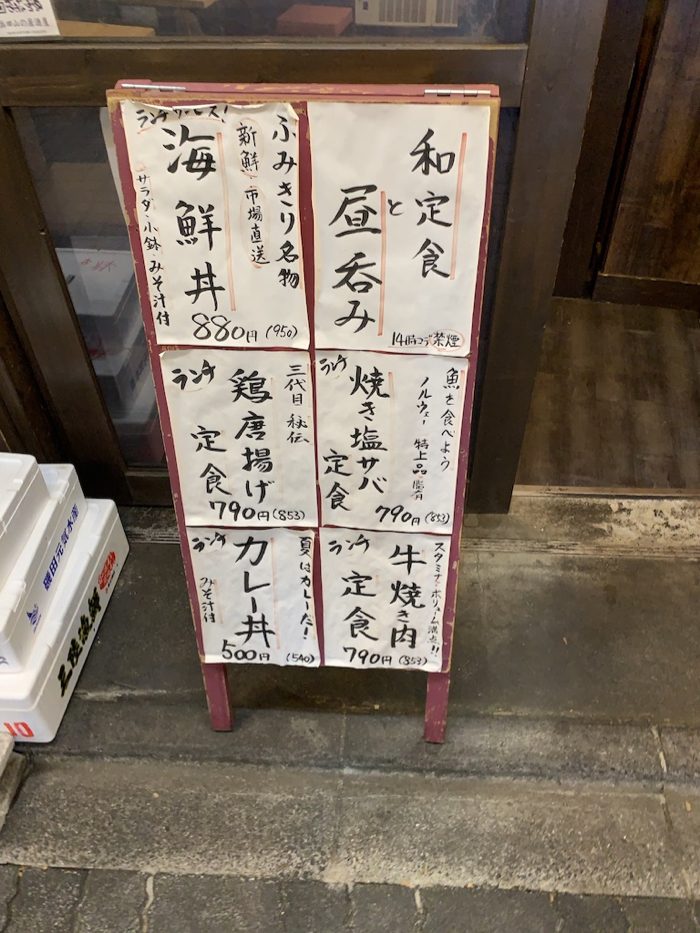 和定食
と
昼呑み
14時マデ禁煙
ランチサービス!
ふみきり名物
新鮮 市場直送
海鮮丼
サラダ・小鉢 みそ汁付
880円(950)
魚を食べよう
ノルウェー 特上品
ランチ
焼き塩サバ
定食
790円(853)
三代目 秘伝
ランチ
鶏唐揚げ
定食
790円(853)
スタミナ・ボリューム満点!!
ランチ
牛焼き肉
定食
790円(853)
夏はカレーだ!
ランチ
カレー丼
みそ汁付
500円(540)
磯田元気水産
10